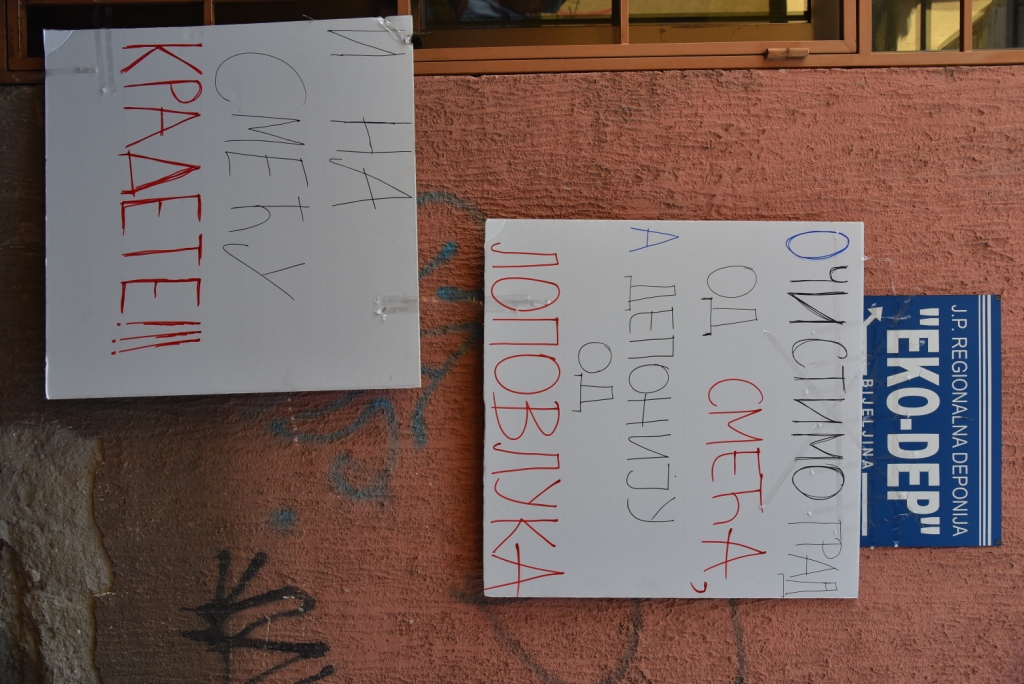 J.P. REGIONALNA DEPONIJA
"EKO-DEP"
BIJELJINA
ОЧИСТИМО ГРАД
ОД СМЕЋА,
А ДЕПОНИЈУ
ОД
ЛОПОВЛУКА
И НА
СМЕЋУ
КРАДЕТЕ!!!